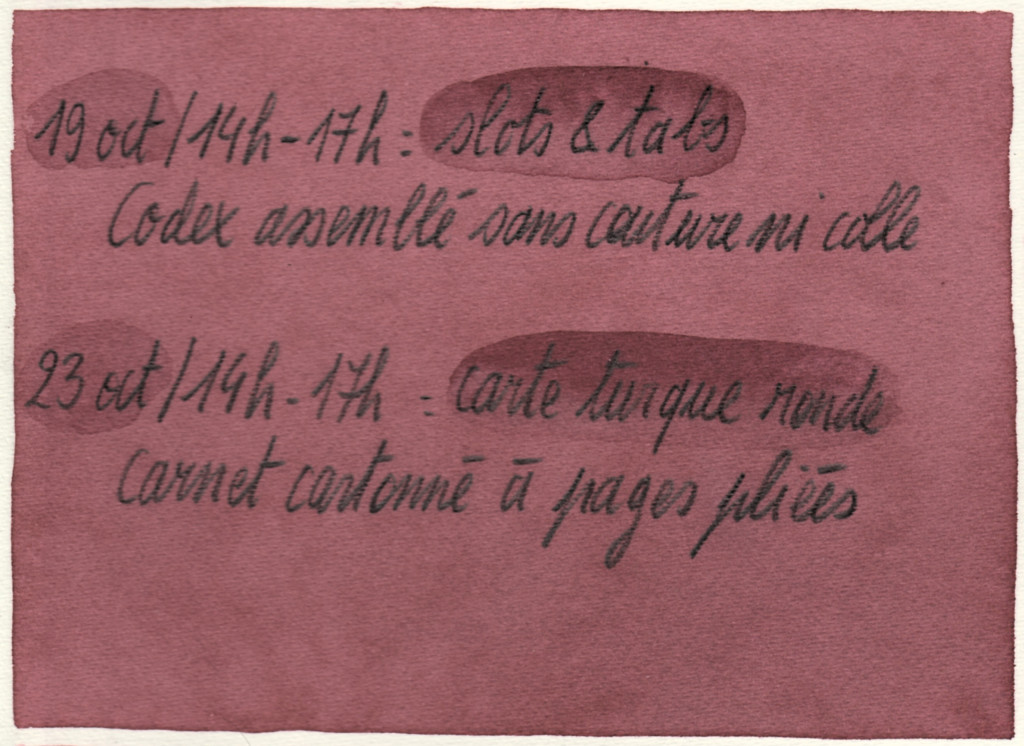 19 oct / 14h - 17h : slots & tabs
Codex assemblé sans couture ni colle
23 oct / 14h - 17h : carte turque ronde
Carnet cartonné à pages pliées